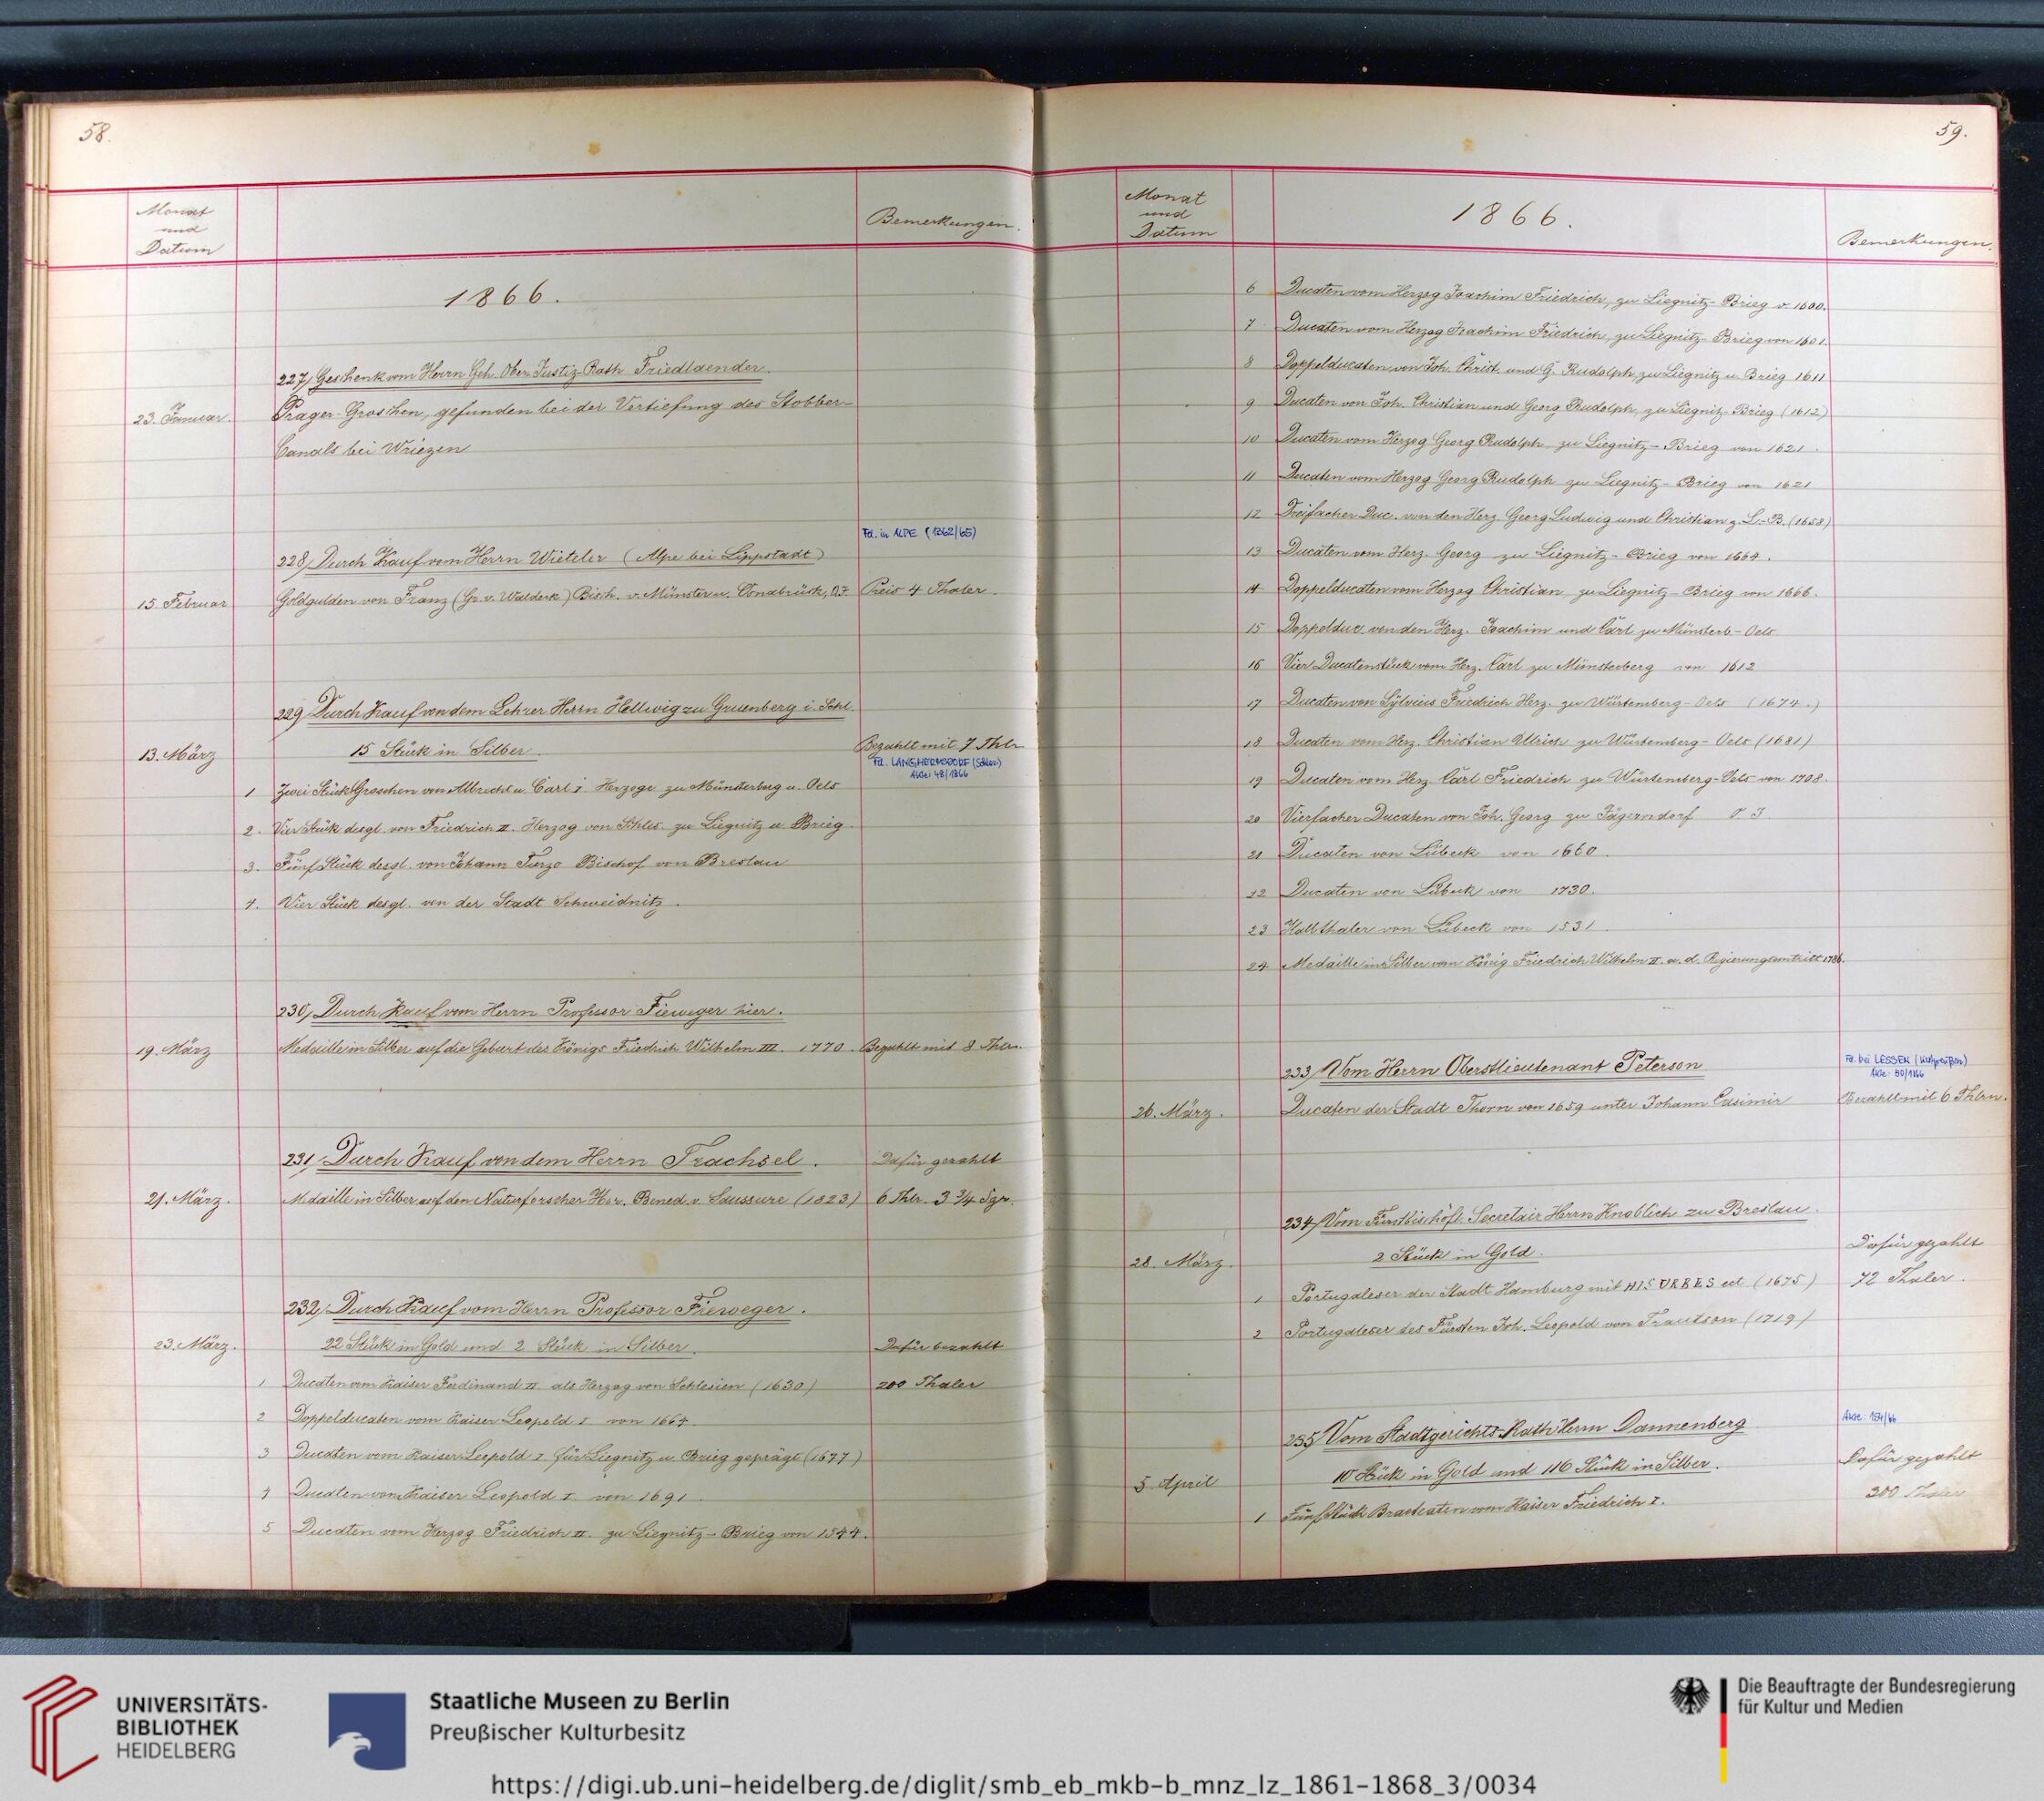 58.
Monat
und
Datum
Bemerkungen.
1866.
227, Geschenk vom Herrn Geh. Ober-Justiz-Rath Friedlaender.
23. Januar.
Prager-Groschen, gefunden bei der Vertiefung des Stobber-
Canals bei Wriezen
Fd. in ALPE (1862/65)
228, Durch Kauf vom Herrn Wieteler (Alpe bei Lippstadt)
15. Februar
Goldgulden von Franz (Gr. v. Waldeck) Bisch. v. Münster u. Osnabrück, O.J. Preis 4 Thaler.
229, Durch Kauf von dem Lehrer Herrn Hellwig zu Gruenberg i. Schl.
13. März
15 Stück in Silber.
Bezahlt mit 7 Thlr
Fd. LANGHERMSDORF (Schles)
Akte: 48/1866
1 Zwei Stück Groschen von Albrecht u. Carl I Herzoge zu Münsterberg u. Oels
2. Vier Stück desgl. von Friedrich II. Herzog von Schles. zu Liegnitz u Brieg.
3. Fünf Stück desgl. von Johann Turzo Bischof von Breslau
4. Vier Stück desgl. von der Stadt Schweidnitz.
230, Durch Kauf vom Herrn Professor Fieweger hier.
19. März
Medaille in Silber auf die Geburt des Königs Friedrich Wilhelm III. 1770. Bezahlt mit 8 Thlr.
231, Durch Kauf von dem Herrn Trachsel.
Dafür gezahlt
21. März.
Medaille in Silber auf den Naturforscher Hor. Bened. v. Saussure (1823)
6 Thlr. 3 3/4 Sgr.
232, Durch Kauf vom Herrn Professor Fieweger.
23. März.
22 Stück in Gold und 2 Stück in Silber.
Dafür bezahlt
1 Ducaten vom Kaiser Ferdinand II. als Herzog von Schlesien (1630)
200 Thaler
2 Doppelducaten vom Kaiser Leopold I von 1664.
3 Ducaten vom Kaiser Leopold I. für Liegnitz u Brieg geprägt (1677)
4 Ducaten vom Kaiser Leopold I. von 1691.
5 Ducaten vom Herzog Friedrich II. zu Liegnitz-Brieg von 1544.
59.
Monat
und
Datum
1866.
Bemerkungen.
6 Ducaten vom Herzog Joachim Friedrich, zu Liegnitz-Brieg v. 1600.
7 Ducaten vom Herzog Joachim Friedrich, zu Liegnitz Brieg von 1601.
8 Doppelducaten von Joh. Christ. und G. Rudolph, zu Liegnitz u. Brieg 1611
9 Ducaten von Joh. Christian und Georg Rudolph, zu Liegnitz-Brieg (1612)
10 Ducaten vom Herzog Georg Rudolph zu Liegnitz-Brieg von 1621.
11 Ducaten vom Herzog Georg Rudolph zu Liegnitz-Brieg von 1621
12 Dreifacher Duc. von den Herz. Georg Ludwig und Christian z. L.-B. (1658)
13 Ducaten vom Herz. Georg zu Liegnitz-Brieg von 1664.
14 Doppelducaten vom Herzog Christian, zu Liegnitz-Brieg von 1666.
15 Doppelduc. von den Herz. Joachim und Carl zu Münsterb-Oels
16 Vier Ducatenstück vom Herz. Carl zu Münsterberg von 1612
17 Ducaten von Sylvius Friedrich Herz. zu Würtemberg-Oels (1674.)
18 Ducaten vom Herz. Christian Ulrich zu Würtemberg-Oels (1681)
19 Ducaten vom Herz. Carl Friedrich zu Würtemberg-Oels von 1708.
20 Vierfacher Ducaten von Joh. Georg zu Jägerndorf O. J.
21 Ducaten von Lübeck von 1660.
22 Ducaten von Lübeck von 1730.
23 Halbthaler von Lübeck von 1531.
24 Medaille in Silber vom König Friedrich Wilhelm II. a. d. Regierungsantritt 1786.
Fd. bei LESSEN (Westpreußen)
Akte: 80/1866
233, Vom Herrn Oberstlieutenant Peterson
26. März.
Ducaten der Stadt Thorn von 1659 unter Johann Casimir
Bezahlt mit 6 Thlrn.
234, Vom Fürstbischöfl. Secretair Herrn Knoblich zu Breslau.
28. März.
2 Stück in Gold.
Dafür gezahlt
1 Portugaleser der Stadt Hamburg mit HIS ORBES ect (1675)
72 Thaler.
2 Portugaleser des Fürsten Joh. Leopold von Trautson (1719)
Akte: 154/66
235, Vom Stadtgerichts-Rath Herrn Dannenberg
5. April
10 Stück in Gold und 116 Stück in Silber.
Dafür gezahlt
300 Thaler
1 Fünf Stück Bracteaten vom Kaiser Friedrich I.
UNIVERSITÄTS-
BIBLIOTHEK
HEIDELBERG
Staatliche Museen zu Berlin
Preußischer Kulturbesitz
Die Beauftragte der Bundesregierung
für Kultur und Medien
https://digi.ub.uni-heidelberg.de/diglit/smb_eb_mkb-b_mnz_lz_1861-1868_3/0034